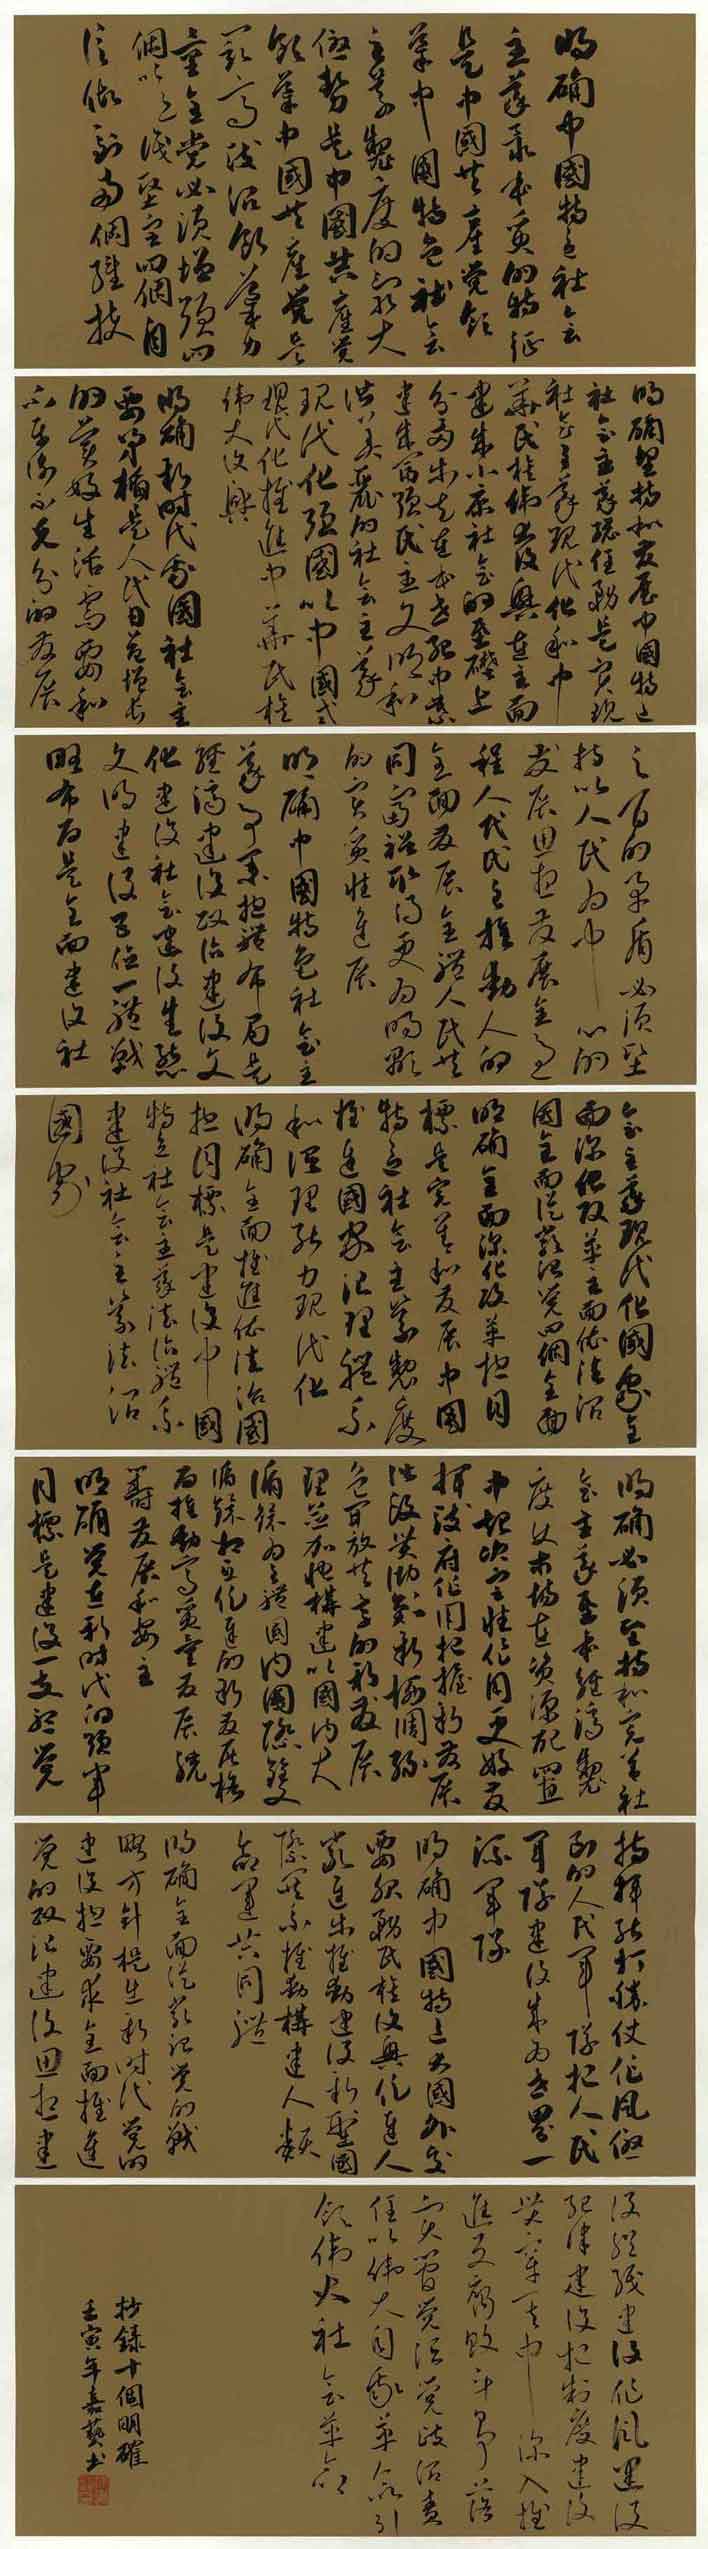 明确中國特色社会
主義最本质的特征
是中國共産党领
导中國特色社会
主義製度的最大
优势是中國共産党
领导中國共産党是
最高政治领导力
量全党必须增强四
個意识坚定四個自
信做到两個维护
明确坚持和发展中國特色
社会主義总任务是实现
社会主義现代化和中
华民族伟大复興在全面
建成小康社会的基礎上
分两步走在本世纪中葉
建成富强民主文明和
谐美麗的社会主義
现代化强國以中國式
现代化推進中华民族
伟大复興
明确新时代我國社会主
要矛盾是人民日益增长
的美好生活需要和
不平衡不充分的发展
之间的矛盾必须坚
持以人民为中心的
发展思想发展全过
程人民民主推動人的
全面发展全體人民共
同富裕取得更为明顯
的实质性進展
明确中國特色社会主
義事業总體布局是
经济建设政治建设文
化建设社会建设生態
文明建设五位一體戰
略布局是全面建设社
会主義现代化國家全
面深化改革全面依法治
國全面從嚴治党四個全面
明确全面深化改革总目
標是完善和发展中國
特色社会主義製度
推進國家治理體系
和治理能力现代化
明确全面推進依法治國
总目標是建设中國
特色社会主義法治體系
建设社会主義法治
國家
明确必须坚持和完善社
会主義基本经济製
度使市场在资源配置
中起决定性作用更好发
挥政府作用把握新发展
阶段贯彻創新協調绿
色开放共享的新发展
理念加快構建以國内大
循环为主體國内國際雙
循环相互促進的新发展格
局推動高质量发展统
筹发展和安全
明确党在新时代的强军
目標是建设一支听党
指挥能打胜仗作风优
良的人民军隊把人民
军隊建设成为世界一
流军隊
明确中國特色大國外交
要服務民族复興促進人
類進步推動建设新型國
際関系推動構建人類
命運共同體
明确全面從嚴治党的戰
略方针提出新时代党的
建设总要求全面推進
党的政治建设思想建
设组织建设作风建设
纪律建设把制度建设
贯穿其中深入推
進反腐败斗争落
实管党治党政治责
任以伟大自我革命引
领伟大社会革命
抄録十個明確
壬寅年嘉藝书